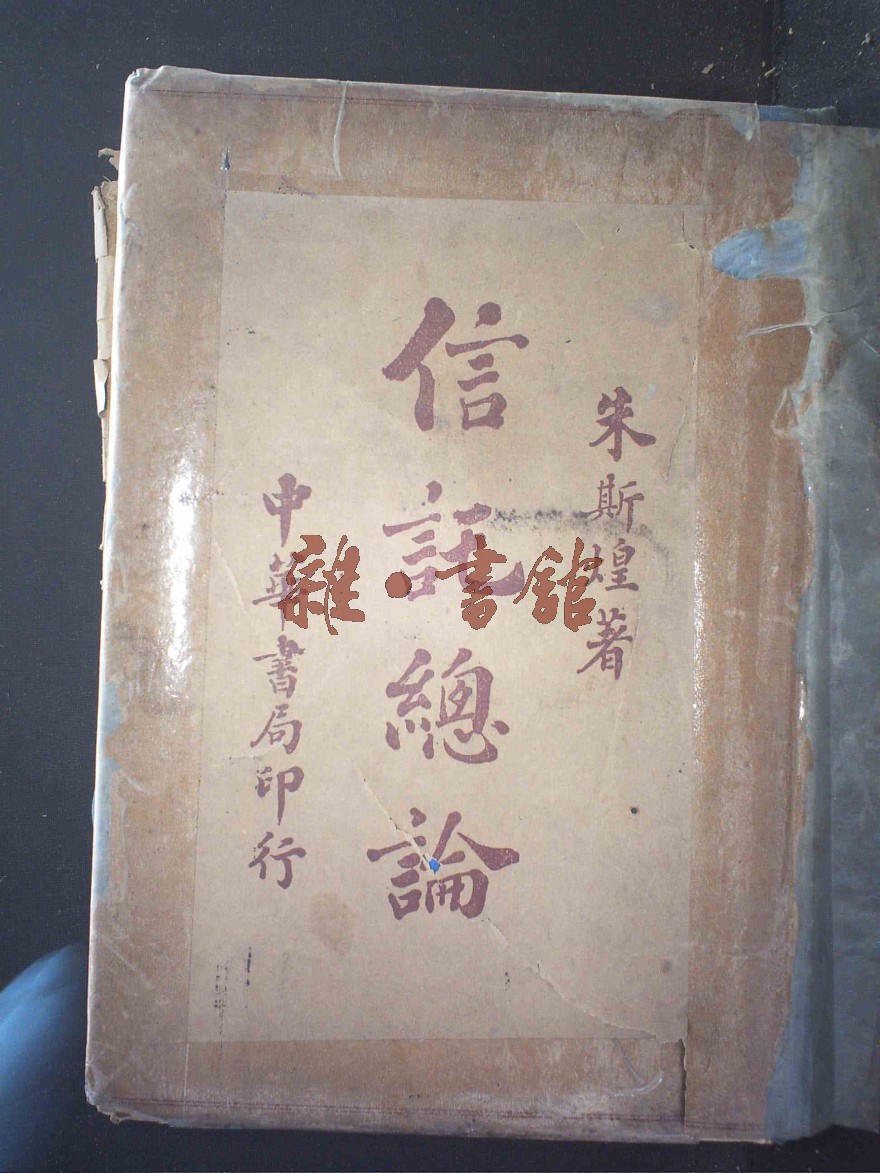 朱斯煌著
信託總論
中華書局印行
雜·書館